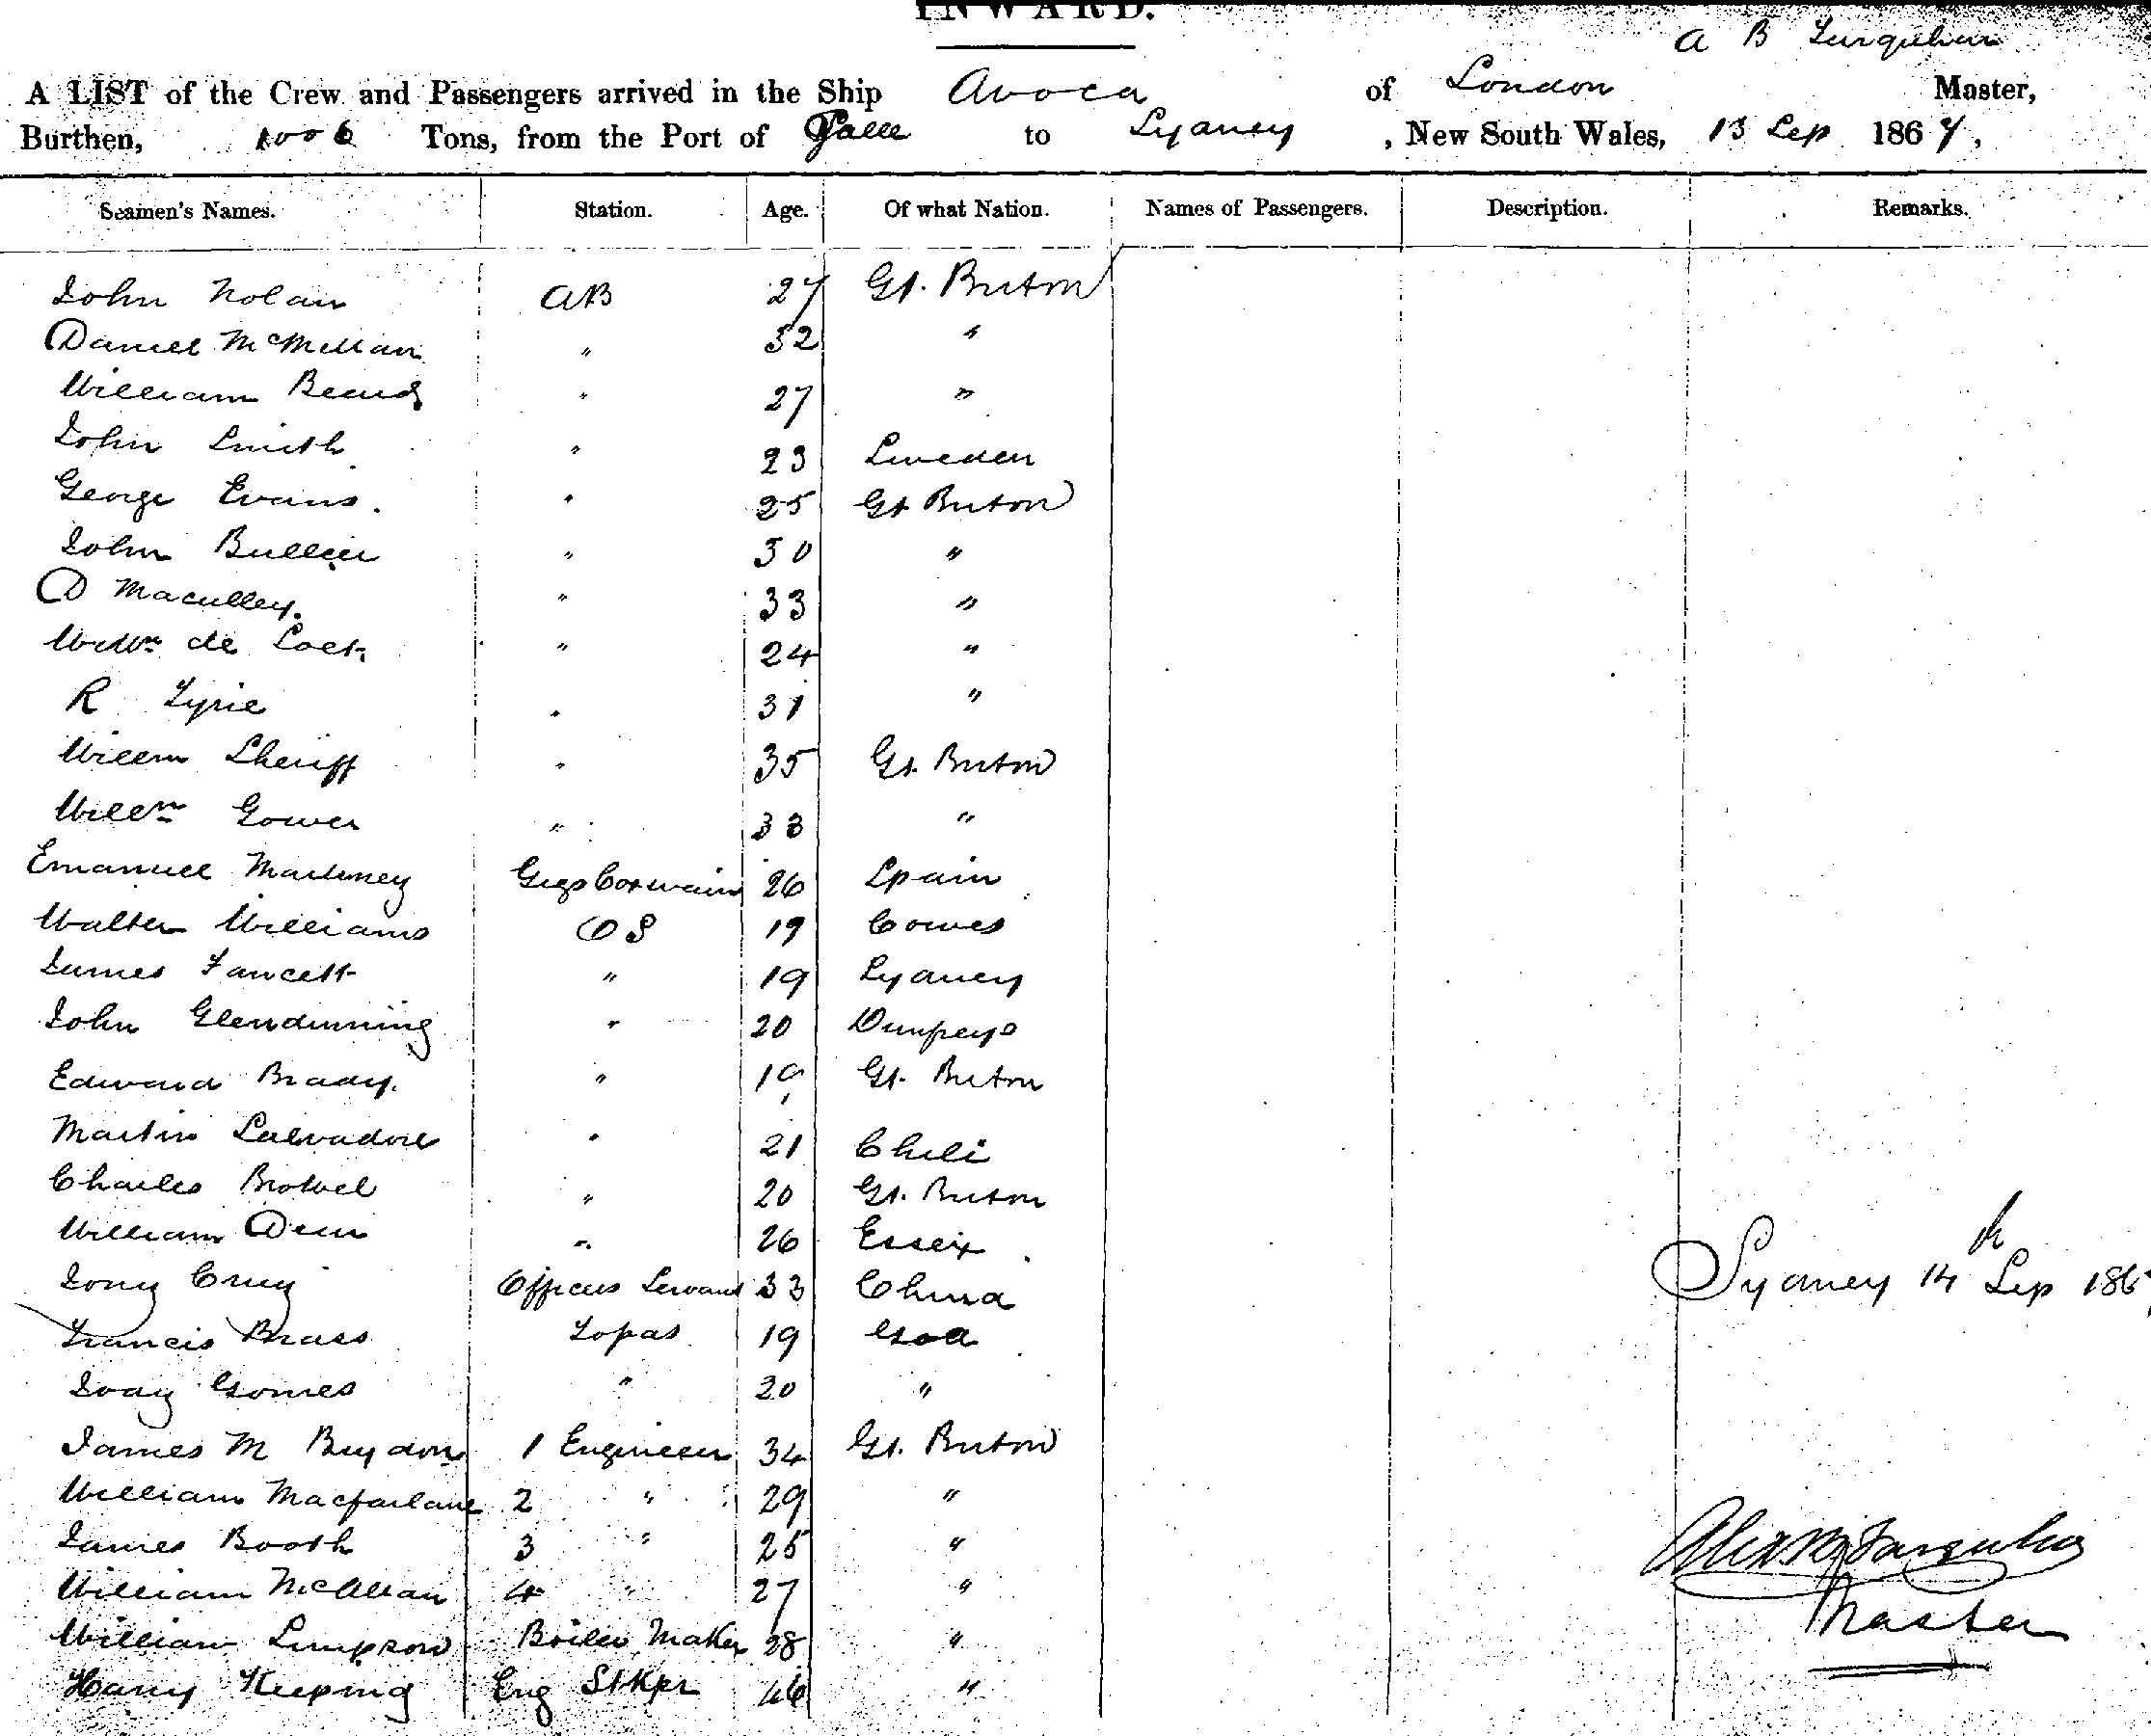 INWARD.
A B Farquhar
A LIST of the Crew and Passengers arrived in the Ship Avoca of London Master,
Burthen, 1006 Tons, from the Port of Galle to Sydney, New South Wales, 13 Sep 1867,
Seamen's Names. Station. Age. Of what Nation. Names of Passengers. Description. Remarks.
John Nolan AB 27 Gt. Briton
Daniel McMillan " 32 "
William Beard " 27 "
John Smith " 23 Sweden
George Evans. " 25 Gt Briton
John " 30 "
D Maculley. " 33 "
Willm de " 24 "
R Tyrie " 31 "
Willm Sheriff " 35 Gt. Briton
Willm Gower " 33 "
Emanuel Martiney Gigs Coxwain 26 Spain
Walter Williams OS 19 Cowes
James Fawcett " 19 Sydney
John Glendinning " 20
Edward Brady. " 19 Gt. Briton
Martin Salvadore " 21 Chili
Charles " 20 Gt. Briton
William " 26 Essex
Officers Servant 33 China
Francis Brass Topas 19 Goa
Gomes " 20 "
James M 1 Engineer 34 Gt. Briton
William Macfarlane 2 " 29 "
James Booth 3 " 25 "
William McAllan 4 " 27 "
William Simpson Boiler Maker 28 "
Harry Keeping Eng StKpr 46 "
Sydney 14 Sep 186
Alex B Farquhar
Master